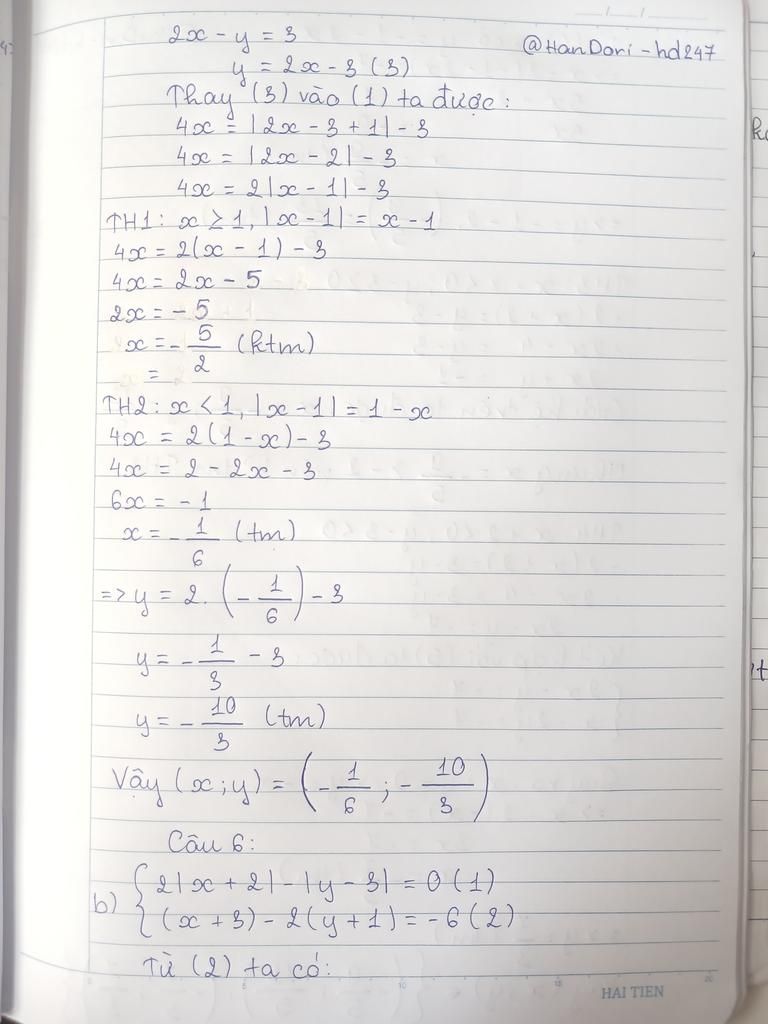 2x - y = 3
@HanDori - hd247
y = 2x - 3 (3)
Thay (3) vào (1) ta được:
4x = |2x - 3 + 1| - 3
4x = |2x - 2| - 3
4x = 2|x - 1| - 3
TH1: x ≥ 1, |x - 1| = x - 1
4x = 2(x - 1) - 3
4x = 2x - 5
2x = - 5
x = - 5/2 (ktm)
=
TH2: x < 1, |x - 1| = 1 - x
4x = 2(1 - x) - 3
4x = 2 - 2x - 3
6x = - 1
x = - 1/6 (tm)
=> y = 2. (- 1/6) - 3
y = - 1/3 - 3
y = - 10/3 (tm)
Vậy (x; y) = (- 1/6; - 10/3)
Câu 6:
b) { 2|x + 2| - |y - 3| = 0 (1)
(x + 3) - 2(y + 1) = - 6 (2)
Từ (2) ta có:
0 5 10 15 20
HAI TIEN